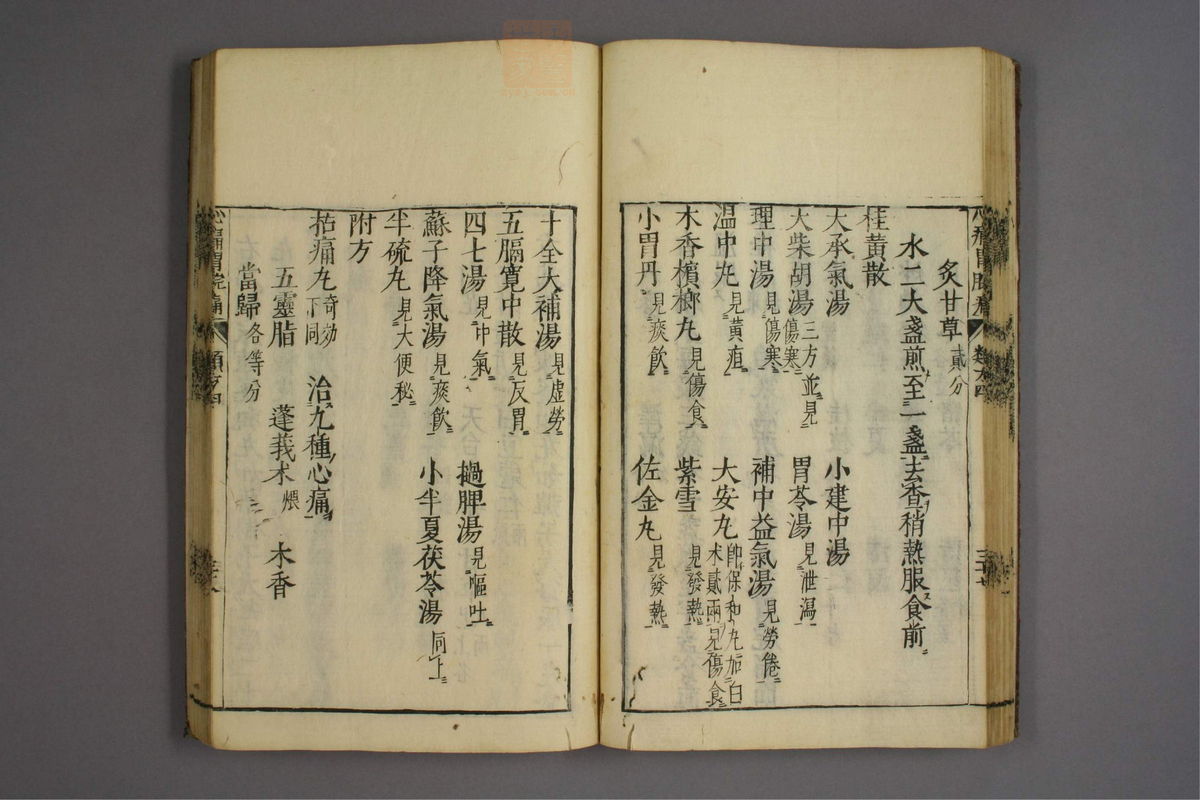 炙甘草貳分
水二大盞煎至一盞去查稍熱服食前
桂黃散
大承氣湯 小建中湯
大柴胡湯三方並見傷寒 胃苓湯見泄瀉
理中湯見傷寒 補中益氣湯見勞倦
温中丸見黃疸 大安丸即保和丸加白术貳兩見傷食
木香檳榔丸見傷食 紫雪見發熱
小胃丹見痰飲 佐金丸見發熱
十全大補湯見虛勞
五膈寬中散見反胃
四七湯見中氣 撾脾湯見嘔吐
蘇子降氣湯見痰飲 小半夏茯苓湯同上
半硫丸見大便秘
附方
拈痛丸奇効下同 治九種心痛
五靈脂 蓬莪术煨 木香
當歸各等分